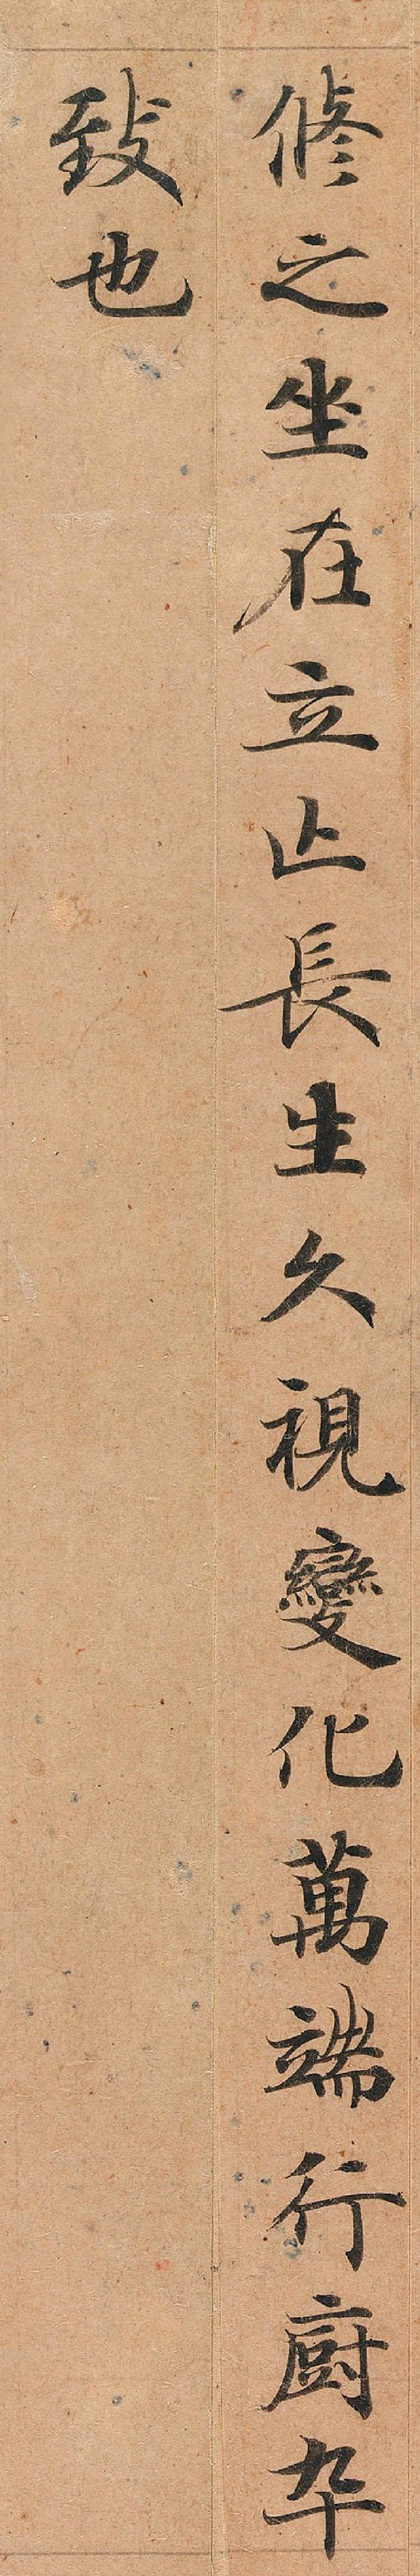 脩之坐在立亡長生久視變化萬端行廚卒
致也